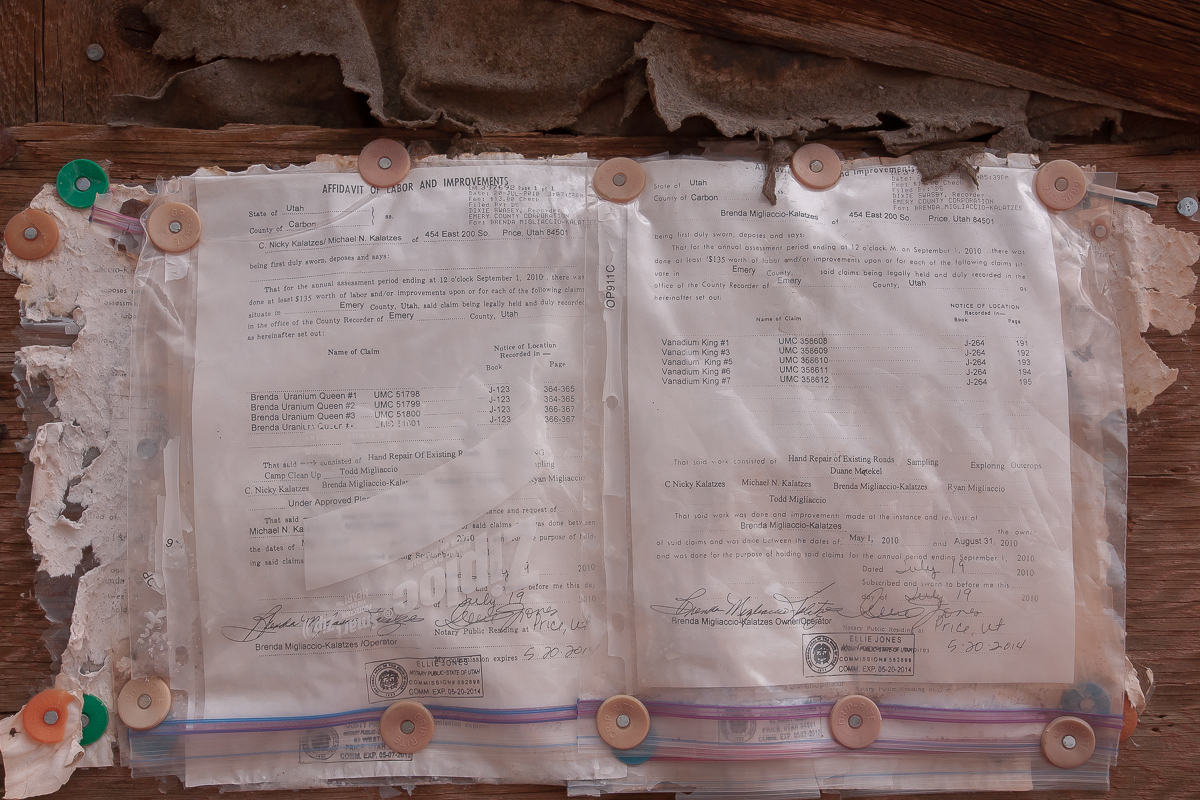 AFFIDAVIT OF LABOR AND IMPROVEMENTS
Page 1 of 1
Fee: $12.00 Check
EMERY COUNTY CORPORATION
For: BRENDA MIGLIACCIO-KALATZES
State of Utah
County of Carbon } ss.
C. Nicky Kalatzes/ Michael N. Kalatzes of 454 East 200 So. Price, Utah 84501
being first duly sworn, deposes and says:
That for the annual assessment period ending at 12 o'clock September 1, 2010 there was
done at least $135 worth of labor and/or improvements upon or for each of the following claims
situate in Emery County, Utah, said claim being legally held and duly recorded
in the office of the County Recorder of Emery County, Utah
as hereinafter set out:
Name of Claim Notice of Location
Recorded in—
Book Page
Brenda Uranium Queen #1 UMC 51798 J-123 364-365
Brenda Uranium Queen #2 UMC 51799 J-123 364-365
Brenda Uranium Queen #3 UMC 51800 J-123 366-367
Brenda Uranium Queen J-123 366-367
That said consisted of Hand Repair of Existing
Camp Clean Up Todd Migliaccio
C. Nicky Kalatzes Brenda Migliaccio-Kala Ryan Migliaccio
Under Approved
That said and request of
Michael N. Ka said claims was done between
the dates of 2010
ing said claims 2010
July 19
before me this day
Notary Public Residing at Price, Ut
Brenda Migliaccio-Kalatzes /Operator
commission expires 5-20-2014
ELLIE JONES
NOTARY PUBLIC-STATE OF UTAH
COMMISSION# 582898
COMM. EXP. 05-20-2014
Ziploc
OP911C
State of Utah
County of Carbon
EMERY COUNTY CORPORATION
For: BRENDA MIGLIACCIO-KALATZES
Brenda Migliaccio-Kalatzes of 454 East 200 So. Price, Utah 84501
being first duly sworn, deposes and says:
That for the annual assessment period ending at 12 o'clock M. on September 1, 2010 there was
done at least $135 worth of labor and/or improvements upon or for each of the following claims sit
uate in Emery County, said claims being legally held and duly recorded in the
office of the County Recorder of Emery County, Utah as
hereinafter set out:
NOTICE OF LOCATION
Recorded in—
Name of Claim Book Page
Vanadium King #1 UMC 358608 J-264 191
Vanadium King #3 UMC 358609 J-264 192
Vanadium King #5 UMC 358610 J-264 193
Vanadium King #6 UMC 358611 J-264 194
Vanadium King #7 UMC 358612 J-264 195
That said work consisted of Hand Repair of Existing Roads Sampling Exploring Outcrops
Duane
C Nicky Kalatzes Michael N. Kalatzes Brenda Migliaccio-Kalatzes Ryan Migliaccio
Todd Migliaccio
That said work was done and improvements made at the instance and request of
Brenda Migliaccio-Kalatzes the owner
of said claims and was done between the dates of May 1, 2010 and August 31, 2010
and was done for the purpose of holding said claims for the annual period ending September 1, 2010
Dated July 19 2010
Subscribed and sworn to before me this
day of July 19
Brenda Migliaccio-Kalatzes Owner/Operator
Notary Public Residing at Price, Ut
5-20-2014
ELLIE JONES
NOTARY PUBLIC-STATE OF UTAH
COMMISSION# 582898
COMM. EXP. 05-20-2014
COMM. EXP. 05-07-2012